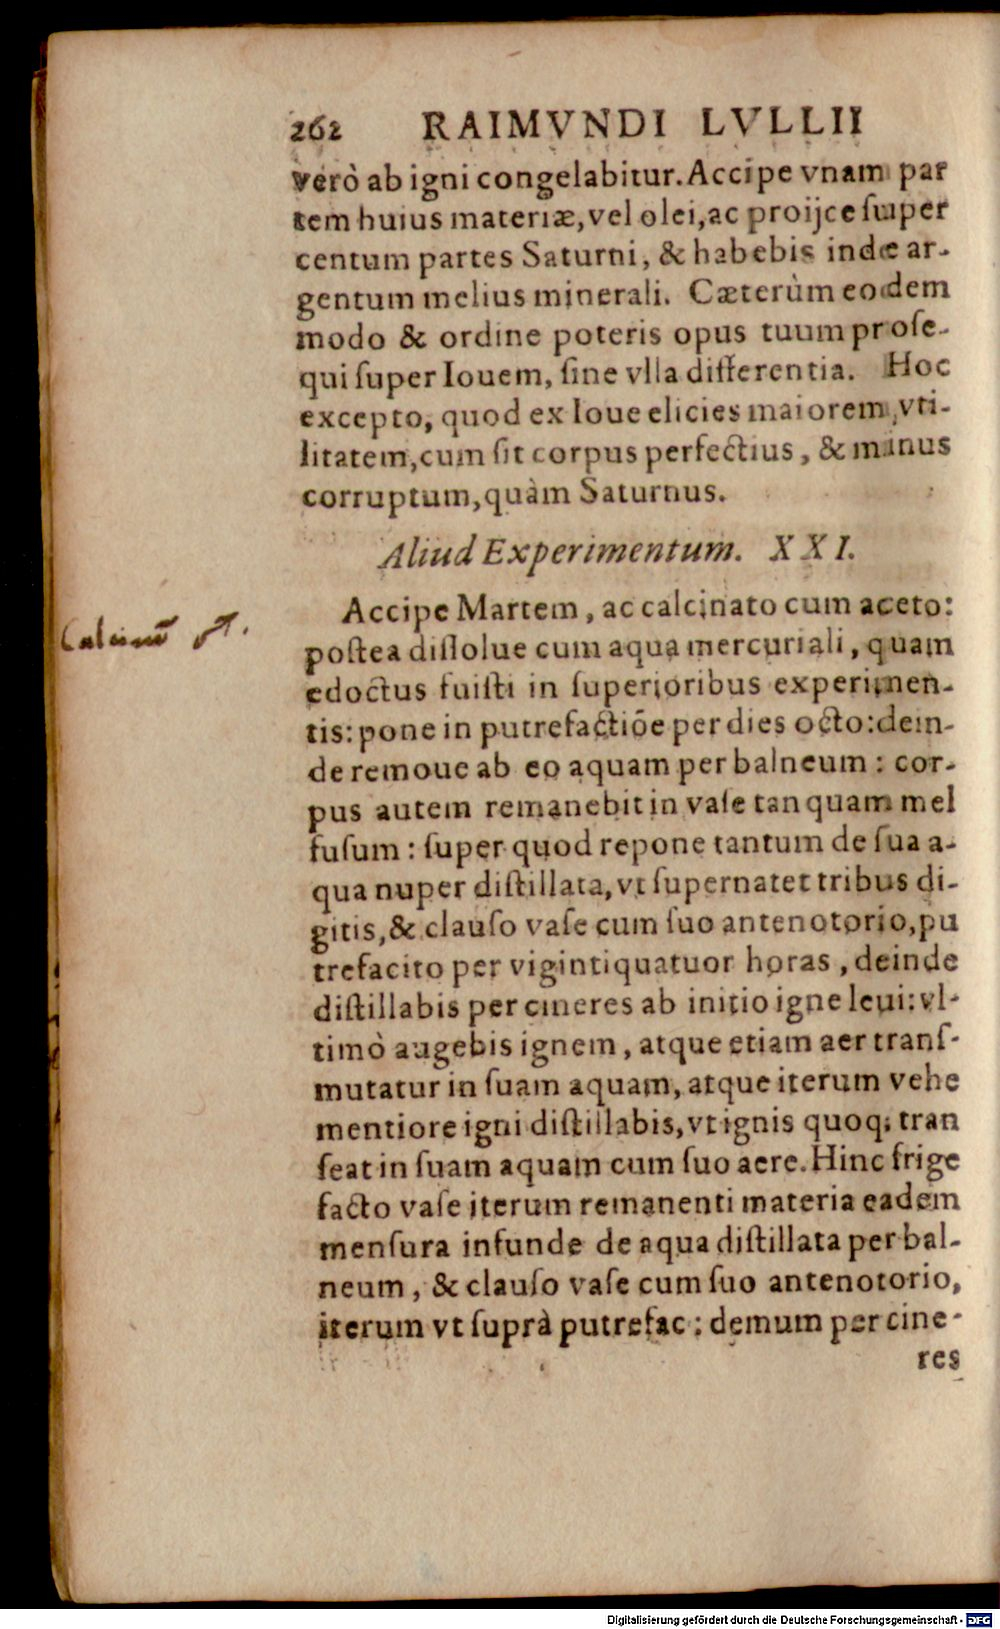 262 RAIMVNDI LVLLII
verò ab igni congelabitur. Accipe vnam par
tem huius materiæ, vel olei, ac proijce ſuper
centum partes Saturni, & habebis inde ar-
gentum melius minerali. Cæterùm eodem
modo & ordine poteris opus tuum proſe-
qui ſuper Iouem, ſine vlla differentia. Hoc
excepto, quod ex Ioue elicies maiorem vti-
litatem, cum ſit corpus perfectius, & minus
corruptum, quàm Saturnus.
Aliud Experimentum. XXI.
Accipe Martem, ac calcinato cum aceto:
poſtea diſſolue cum aqua mercuriali, quam
edoctus fuiſti in ſuperioribus experimen-
tis: pone in putrefactiōe per dies octo: dein-
de remoue ab eo aquam per balneum: cor-
pus autem remanebit in vaſe tanquam mel
fuſum: ſuper quod repone tantum de ſua a-
qua nuper diſtillata, vt ſupernatet tribus di-
gitis, & clauſo vaſe cum ſuo antenotorio, pu
trefacito per vigintiquatuor horas, deinde
diſtillabis per cineres ab initio igne leui: vl-
timò augebis ignem, atque etiam aer tranſ-
mutatur in ſuam aquam, atque iterum vehe
mentiore igni diſtillabis, vt ignis quoq; tran
ſeat in ſuam aquam cum ſuo aere. Hinc frige
facto vaſe iterum remanenti materia eadem
menſura infunde de aqua diſtillata per bal-
neum, & clauſo vaſe cum ſuo antenotorio,
iterum vt ſuprà putrefac: demum per cine-
res
Digitalisierung gefördert durch die Deutsche Forschungsgemeinschaft - DFG